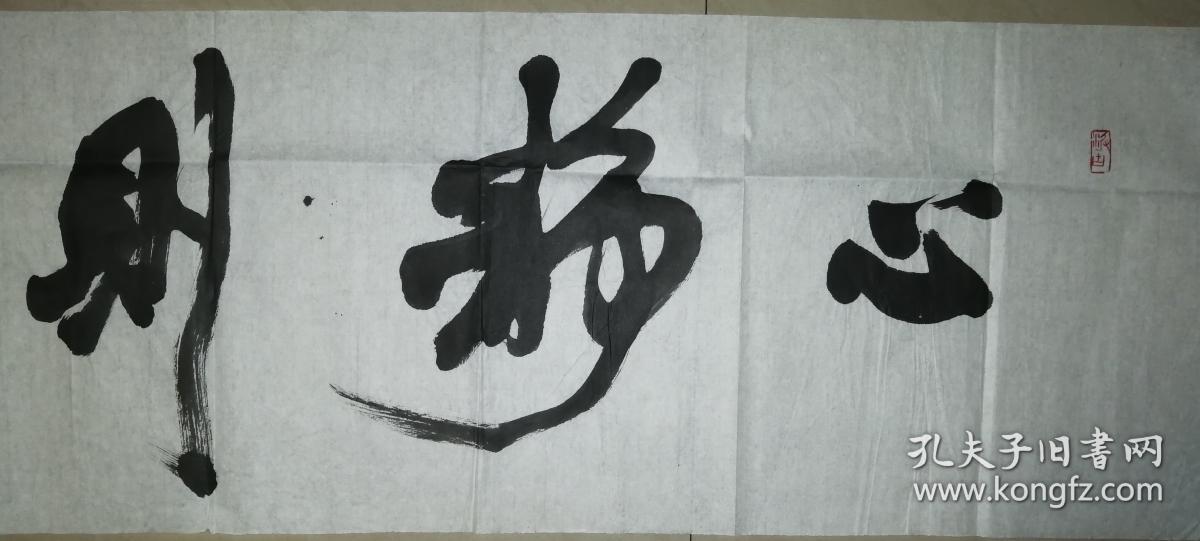 心静則
孔夫子旧书网
www.kongfz.com